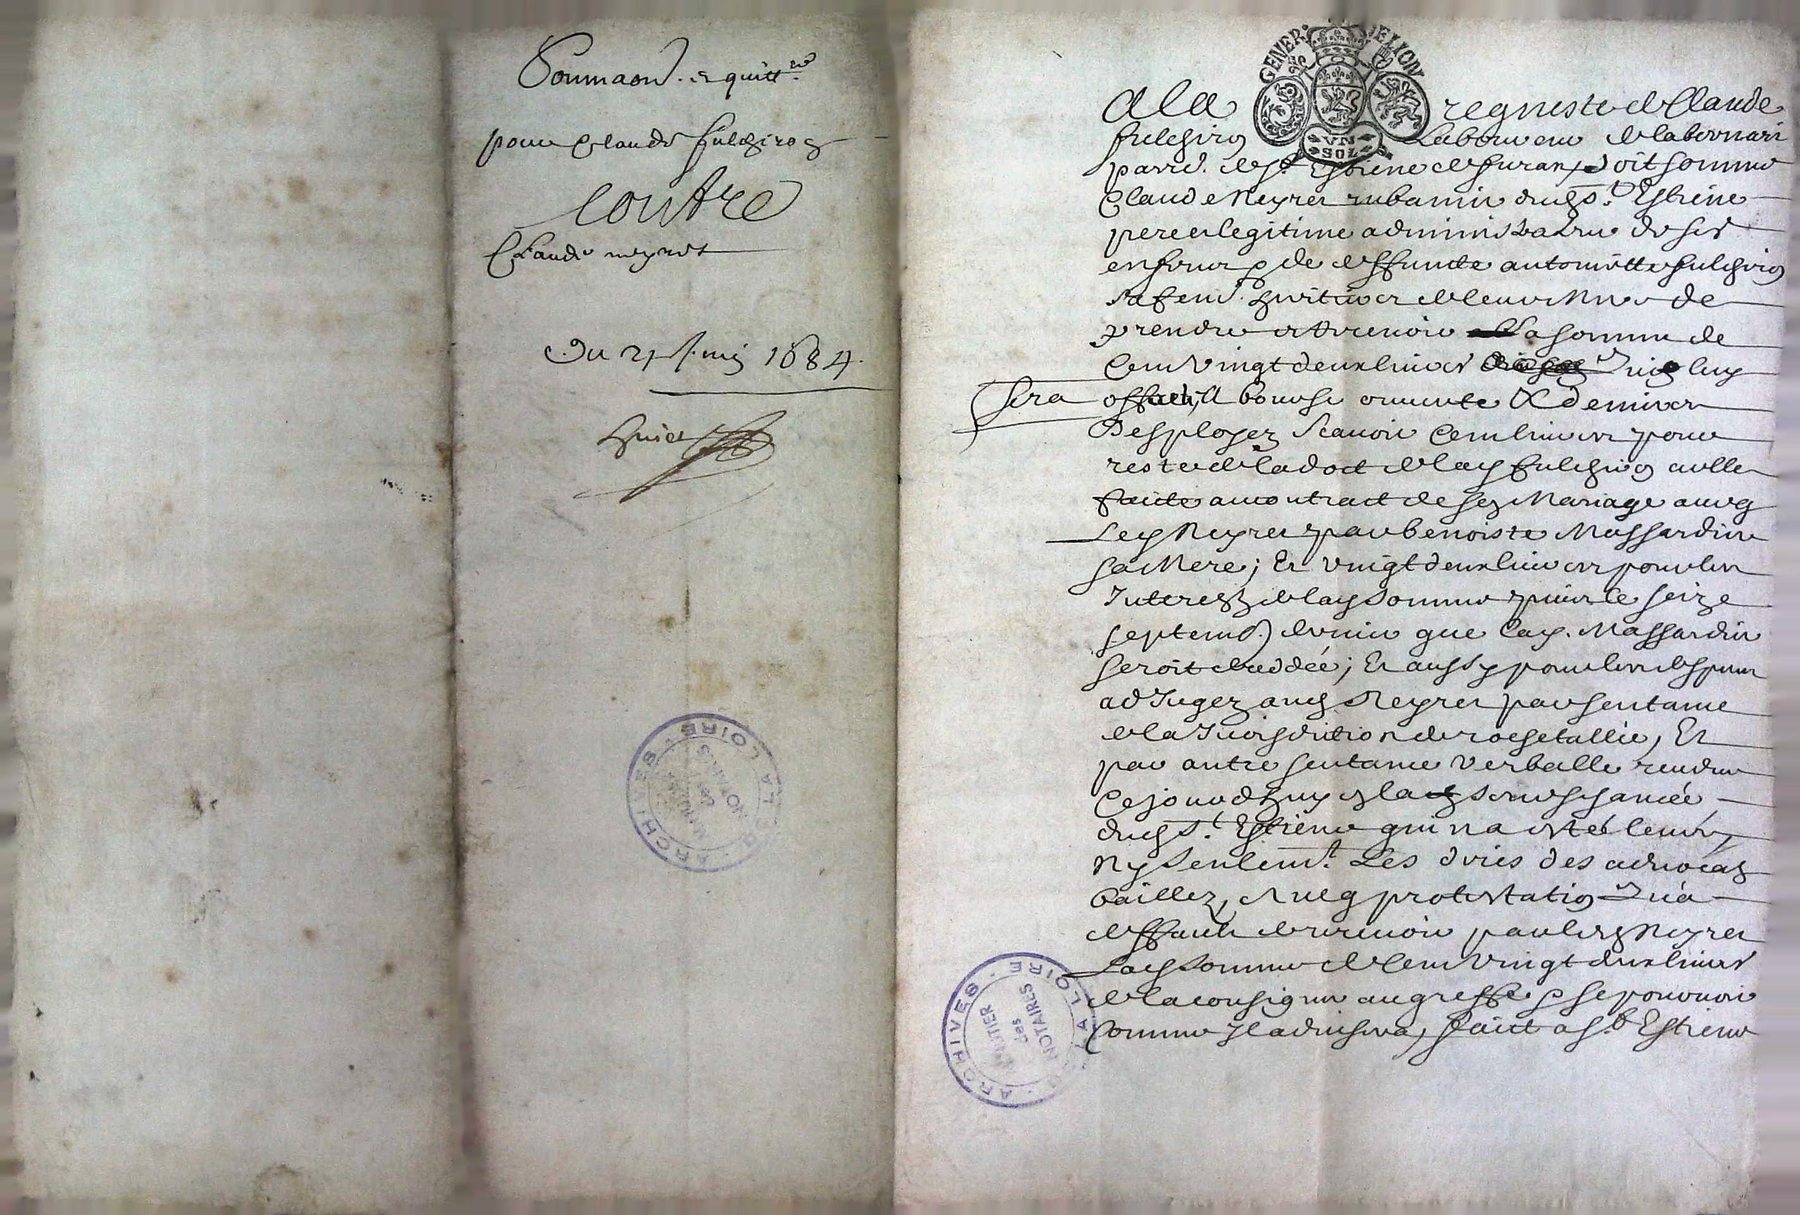 Sommaon. et quitt.ce
pour Claude fulchiron
contre
Claude neyret
Du 21 juin 1684.
ARCHIVES DE LA LOIRE
NOTAIRES
GENER DELION
VN SOL
A la requeste de Claude
fulchiron Laboureur de
parr. de st Estiene de furan, soit somme
Claude Neyret rubanier dud st. Estiene
pere et legitime administrateur de ses
enfens et de deffunte anthoinette fulchiron
sa fem. heritiere
prendre et recevoir la somme de
Cent Vingt deux livres quy luy
sera offert, a bourse ouverte & deniers
Desployez scavoir Cent livres pour
reste de la dot de lad fulchiron a elle
faite au contract de son Mariage avecq
Led Neyret par benoiste Massardier
sa Mere; Et vingt deux livres pour les
Interestz de lad somme puis le seize
septemb. dernier que lad. Massardier
seroit decedée; Et aussy pour les despens
adjugez aud Neyret par sentance
de la Jurisdition de rochetallié, Et
par autre sentance verballe rendue
Ce jourdhuy en la
dud st. Estiene qui n'a estée levée,
Ny seulemt. Les dries des advocatz
baillez, Avecq protestation qu'a
deffaut de recevoir par led Neyret
Lad somme de Cent Vingt deux livres
de la consigner au greffe et se pourvoir
Comme Il advisera, faict a st Estiene
ARCHIVES DE LA LOIRE
des NOTAIRES